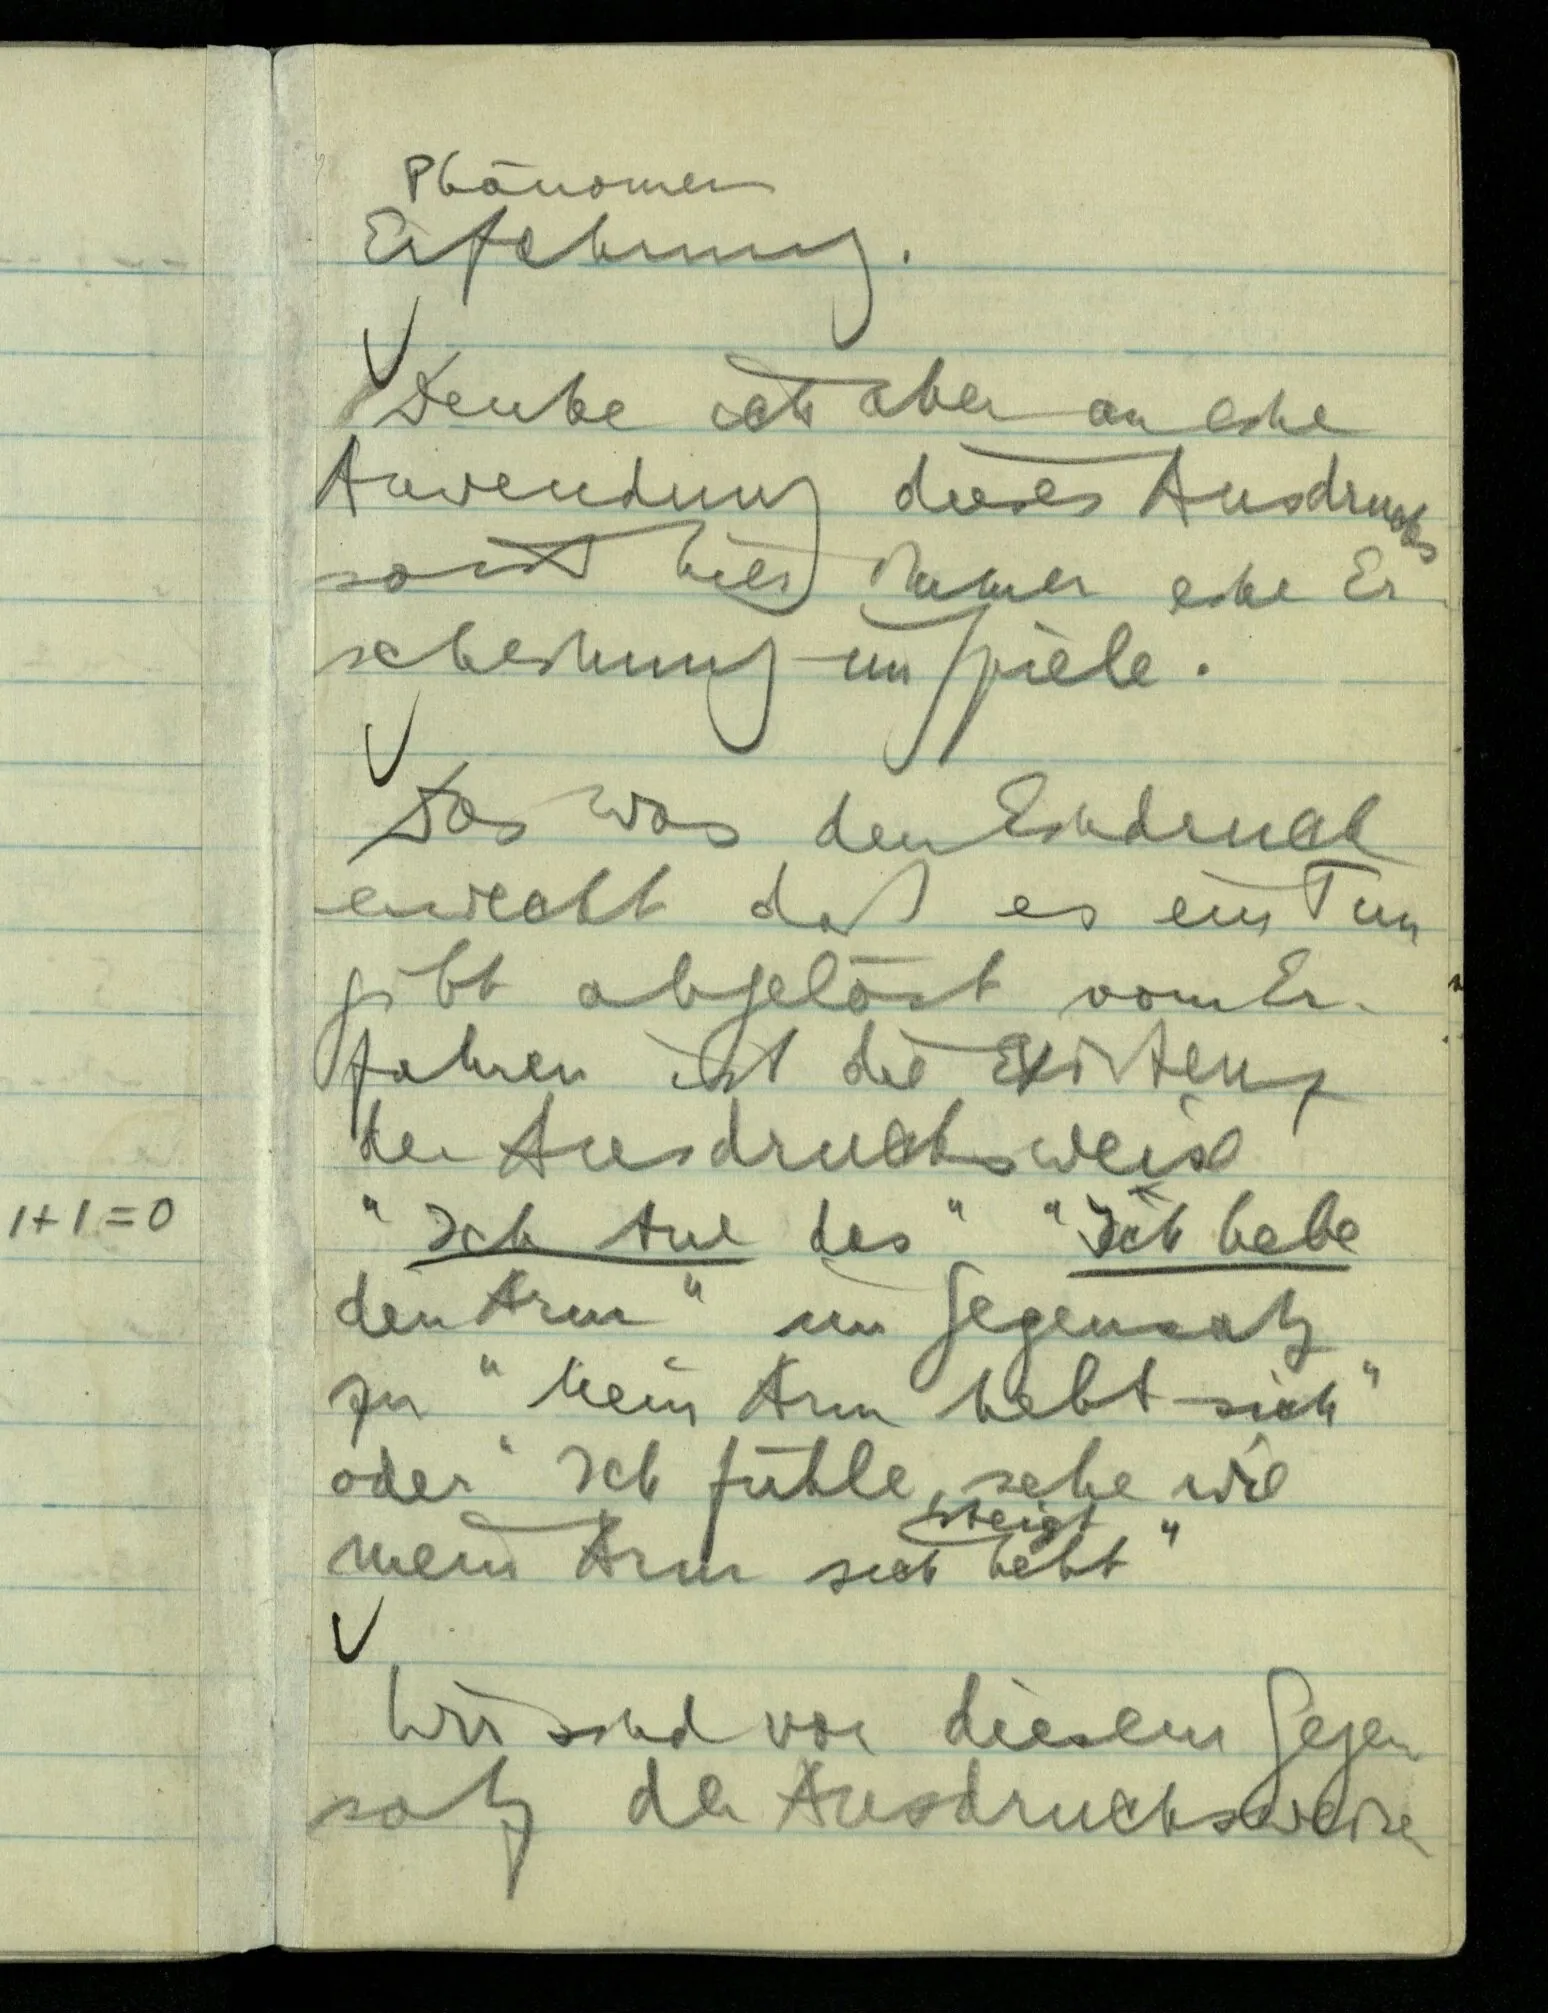 1+1=0
Phänomen
Erfahrung.
Denke ich aber an eine
Anwendung dieses Ausdrucks
so ist hier immer eine Er-
scheinung im Spiele.
Das was den Eindruck
erweckt daß es ein Tun
gibt abgelöst vom Er-
fahren ist die Existenz
der Ausdrucksweise
"Ich tue das" "Ich hebe
den Arm" im Gegensatz
zu "Mein Arm hebt sich"
oder "Ich fühle, sehe wie
steigt
mein Arm sich hebt"
Wir sind von diesem Gegen
satz der Ausdrucksweisen